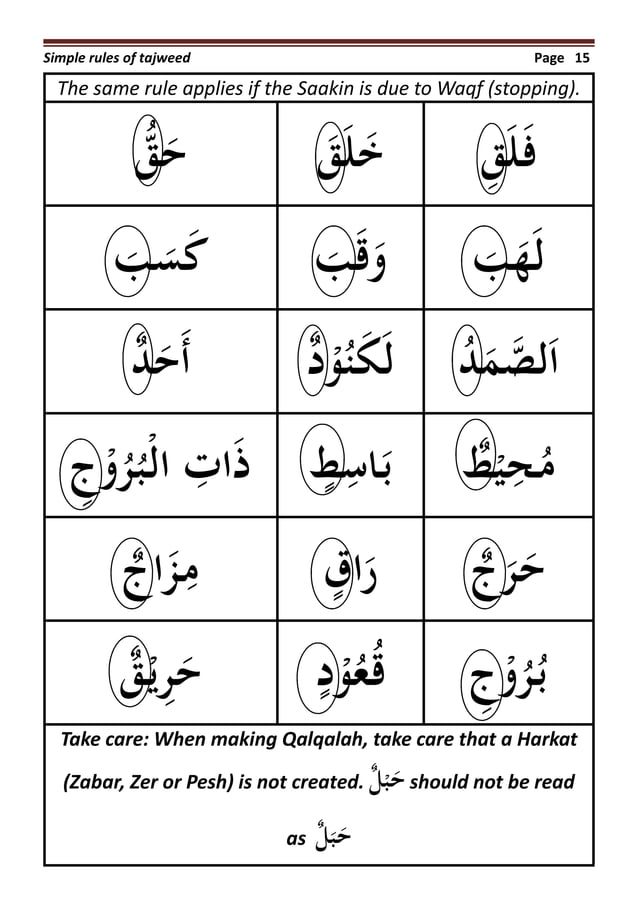 Simple rules of tajweed Page 15
The same rule applies if the Saakin is due to Waqf (stopping).
فَلَقِ خَلَقَ حَقُّ
لَهَبَ وَقَبَ كَسَبَ
اَلصَّمَدُ لَكَنُوْدٌ أَحَدٌ
مُحِيْطٌ بَاسِطٍ ذَاتِ الْبُرُوْجِ
حَرَجٌ رَاقٍ مِزَاجٌ
بُرُوْجِ قُعُوْدٍ حَرِيْقٌ
Take care: When making Qalqalah, take care that a Harkat
(Zabar, Zer or Pesh) is not created. حَبْلٌ should not be read
as حَبَلٌ